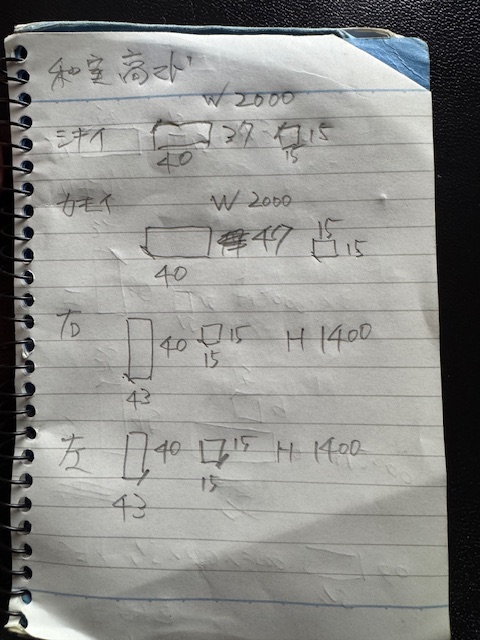 和室高マド
W 2000
シキイ 40 37 15 15
カモイ W 2000
40 47 15 15
右 43 40 15 15 H 1400
左 43 40 15 15 H 1400